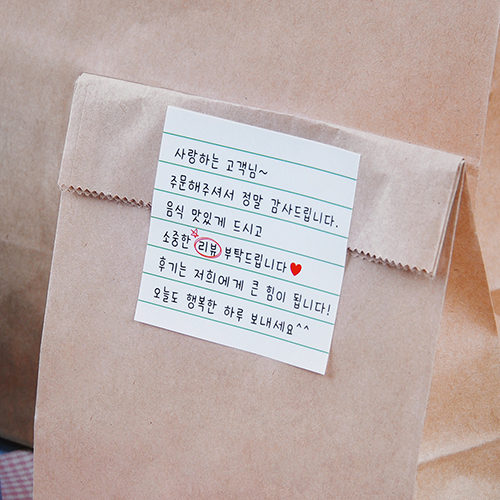 사랑하는 고객님~
주문해주셔서 정말 감사드립니다.
음식 맛있게 드시고
소중한 리뷰 부탁드립니다♥
후기는 저희에게 큰 힘이 됩니다!
오늘도 행복한 하루 보내세요^^